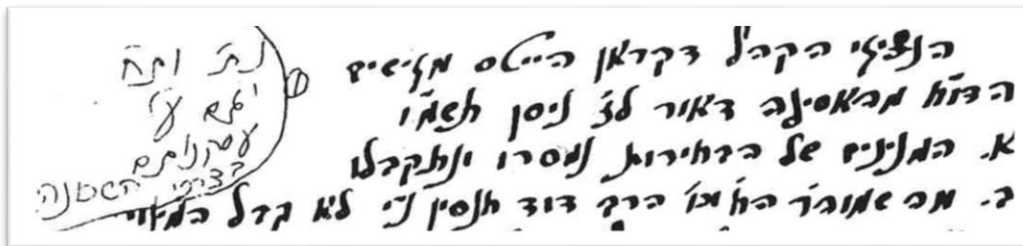 הנציגי הקהל דקראן הייטס מגישים
הדו"ח מהאסיפה דאור לג' ניסן תשמ"ו
א. המנינים של הבחירות נמסרו ונתקבלו
ב. מה שמוהר"ר הרב דוד חנסין נ"י לא קבל המינוי
נת' ות"ח
עסקנותם
בצרכי השכונה